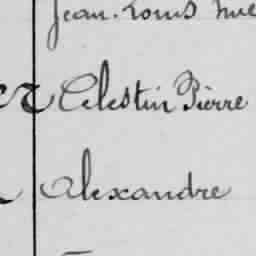 Jean. Louis
Célestin Pierre
Alexandre